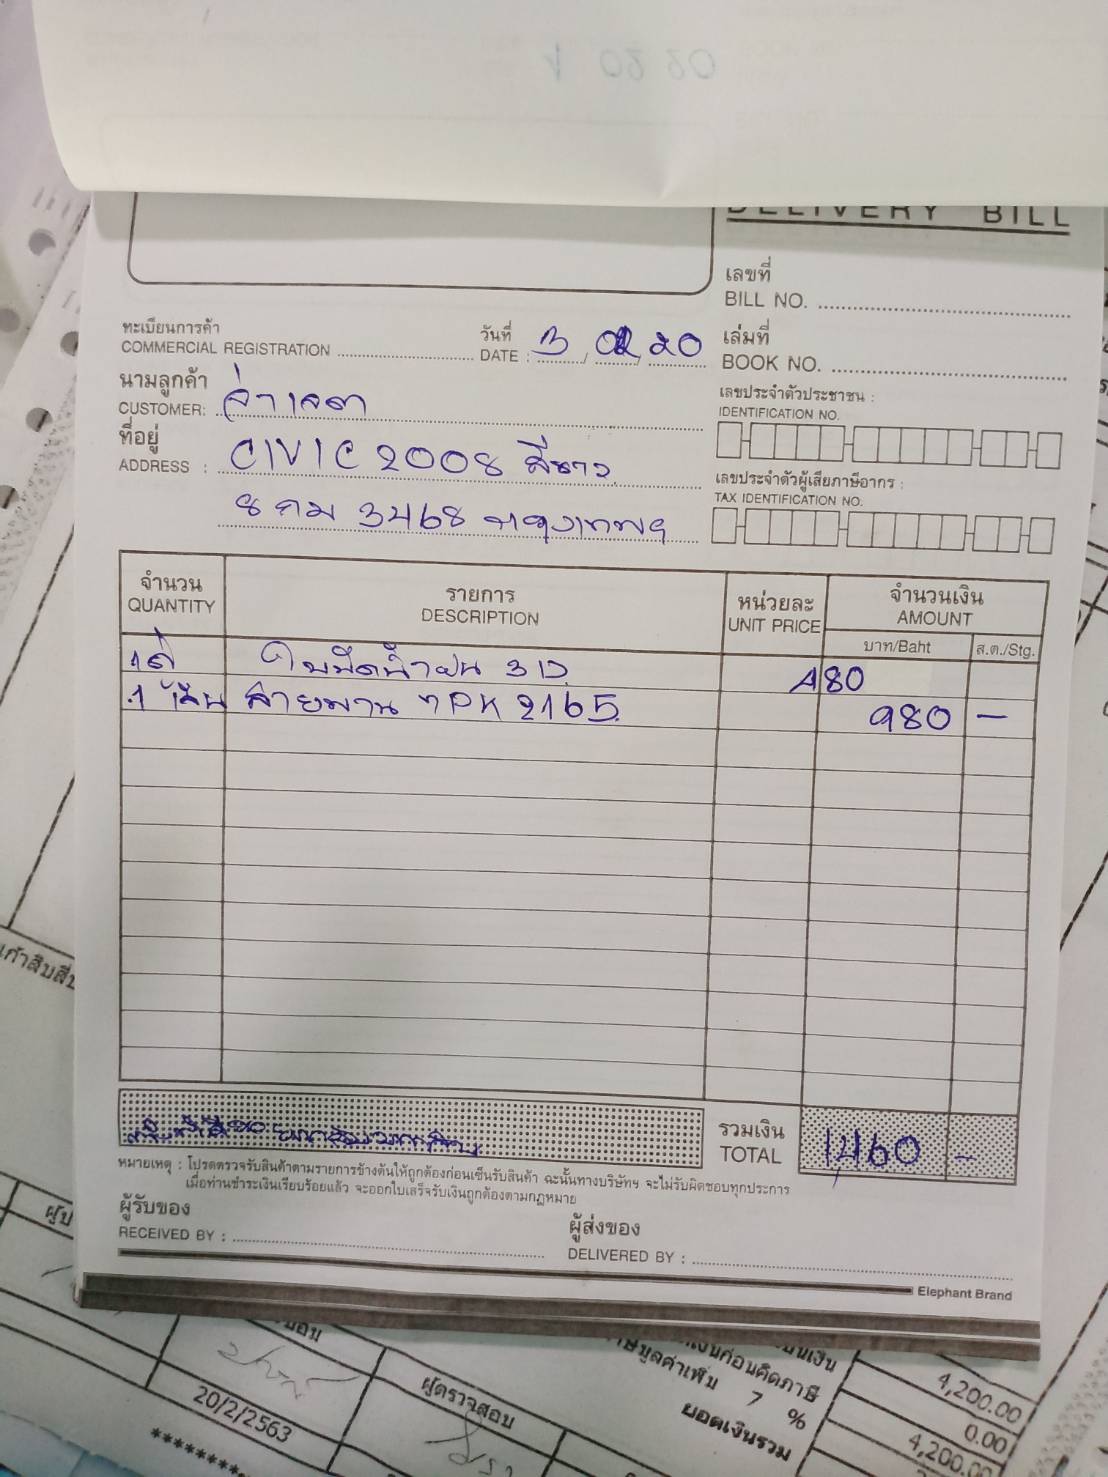 DELIVERY BILL
เลขที่
BILL NO.
ทะเบียนการค้า
COMMERCIAL REGISTRATION
วันที่
DATE : 3 / 02 / 20
เล่มที่
BOOK NO.
นามลูกค้า
CUSTOMER:
เลขประจำตัวประชาชน :
IDENTIFICATION NO.
ที่อยู่
ADDRESS : CIVIC 2008 สีขาว
เลขประจำตัวผู้เสียภาษีอากร :
TAX IDENTIFICATION NO.
8 กม 3468 กรุงเทพฯ
จำนวน
QUANTITY
รายการ
DESCRIPTION
หน่วยละ
UNIT PRICE
จำนวนเงิน
AMOUNT
บาท/Baht
ส.ต./Stg.
1 คู่ ใบปัดน้ำฝน 3D 480
1 เส้น สายพาน 7PK 2165 980 -
รวมเงิน
TOTAL
1,460 -
หมายเหตุ : โปรดตรวจรับสินค้าตามรายการข้างต้นให้ถูกต้องก่อนเซ็นรับสินค้า ฉะนั้นทางบริษัทฯ จะไม่รับผิดชอบทุกประการ
เมื่อท่านชำระเงินเรียบร้อยแล้ว จะออกใบเสร็จรับเงินถูกต้องตามกฎหมาย
ผู้รับของ
RECEIVED BY :
ผู้ส่งของ
DELIVERED BY :
Elephant Brand
20/2/2563
ผู้ตรวจสอบ
7 %
ยอดเงินรวม
4,200.00
0.00